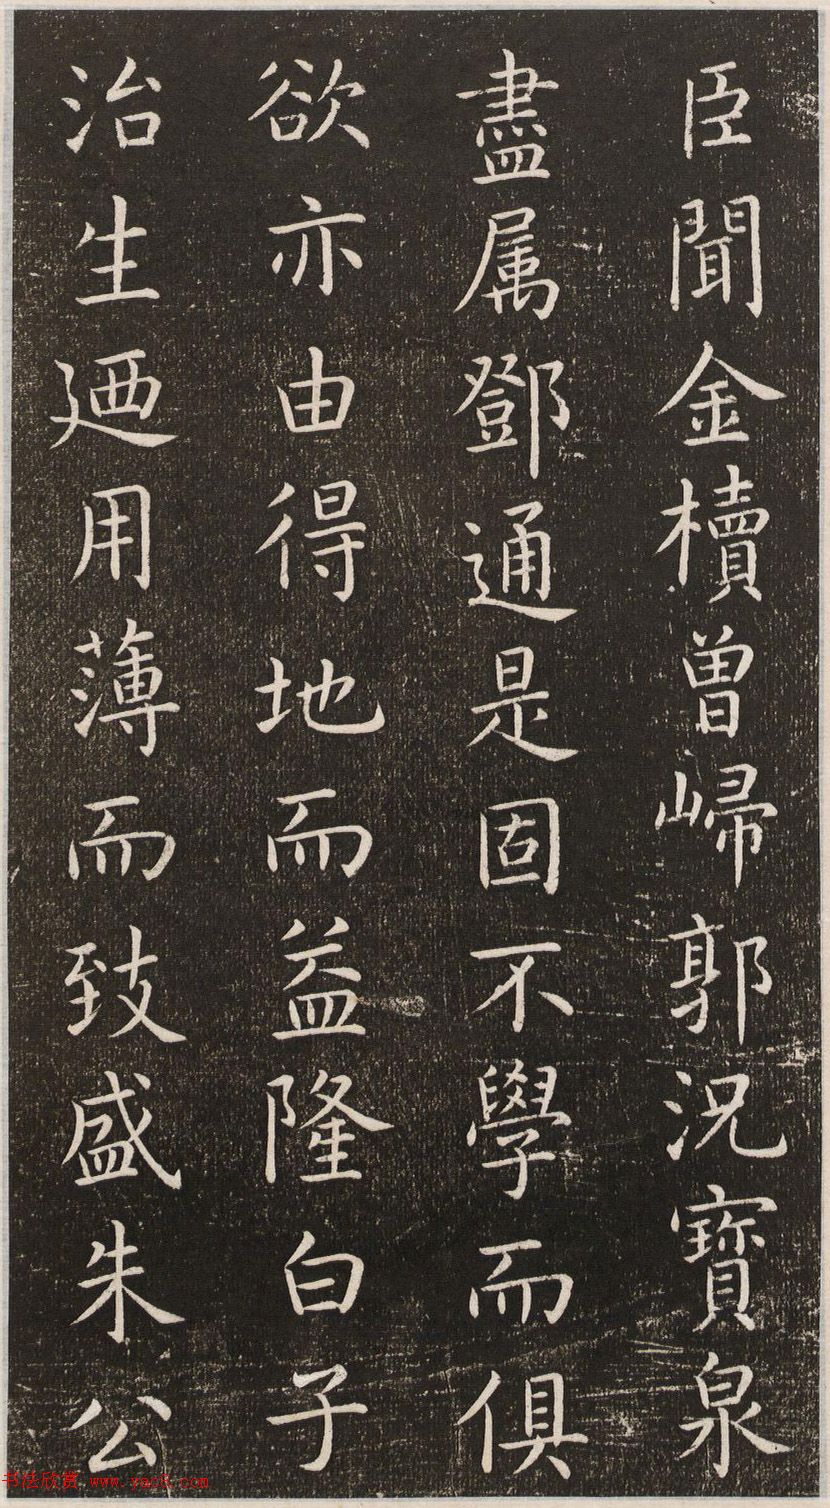 臣聞金櫝曾㱕郭況寶泉
盡属鄧通是固不學而俱
欲亦由得地而益隆白子
治生廼用薄而致盛朱公
书法欣赏 www.yac8.com